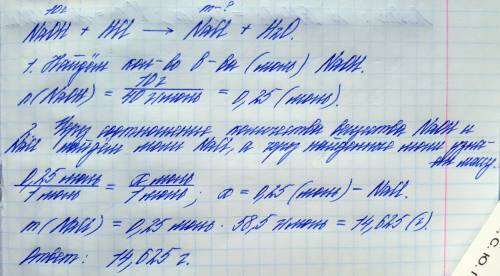 10г m-?
NaOH + HCl → NaCl + H₂O.
1. Найдём кол-во в-ва (моль) NaOH.
n(NaOH) = 10г / 40 г/моль = 0,25 (моль).
2. Чрез соотношение количества вещества NaOH и
NaCl найдём моли NaCl, а чрез найденные моли узна-
ем массу.
0,25 моль / 1 моль = x моль / 1 моль ; x = 0,25 (моль) - NaCl.
m(NaCl) = 0,25 моль · 58,5 г/моль = 14,625 (г).
Ответ: 14,625 г.